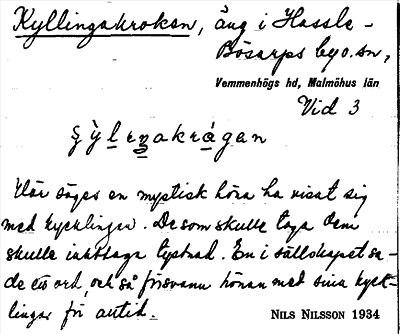 Kyllingakroken, äng i Hassle-
Bösarps by o. sn,
Vemmenhögs hd, Malmöhus län
Vid 3
şỳlenakrágan
Här säges en mystisk höna ha visat sig
med kycklingar. De som skulle taga dem
skulle iakttaga tystnad. En i sällskapet sa-
de ett ord, och så försvann hönan med sina kyck-
lingar för alltid.
NILS NILSSON 1934